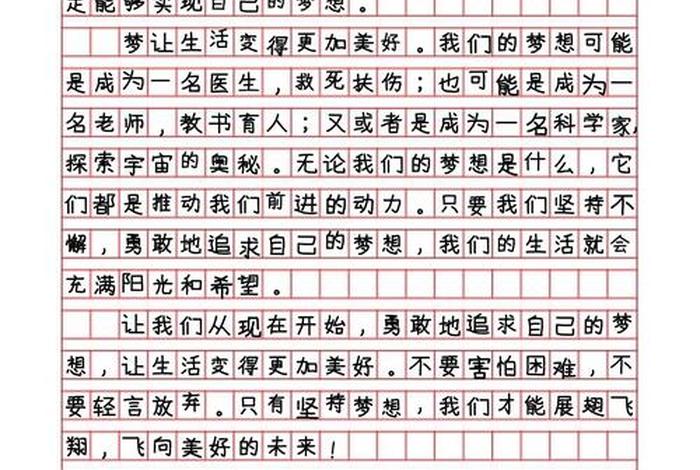 定能够实现自己的梦想。
梦让生活变得更加美好。我们的梦想可能
是成为一名医生，救死扶伤；也可能是成为一
名老师，教书育人；又或者是成为一名科学家，
探索宇宙的奥秘。无论我们的梦想是什么，它
们都是推动我们前进的动力。只要我们坚持不
懈，勇敢地追求自己的梦想，我们的生活就会
充满阳光和希望。
让我们从现在开始，勇敢地追求自己的梦
想，让生活变得更加美好。不要害怕困难，不
要轻言放弃。只有坚持梦想，我们才能展翅飞
翔，飞向美好的未来！